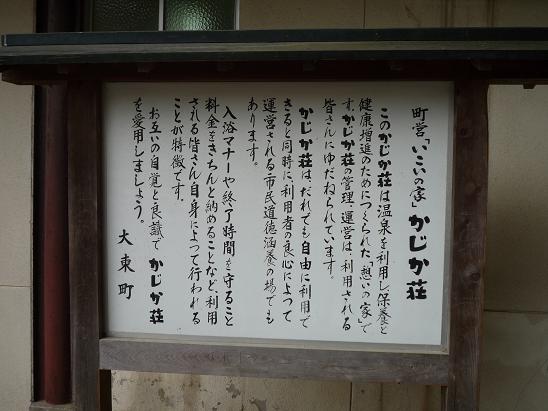 町営「いこいの家」かじか荘
このかじか荘は温泉を利用し保養と
健康増進のためにつくられた「憩いの家」で
す。かじか荘の管理・運営は、利用される
皆さんにゆだねられています。
かじか荘はだれでも自由に利用で
きると同時に、利用者の良心によって
運営される市民道徳涵養の場でも
あります。
入浴マナーや終了時間を守ること
料金をきちんと納めることなど、利用
される皆さん自身によって行われる
ことが特徴です。
お互いの自覚と良識でかじか荘
を愛用しましょう。
大東町